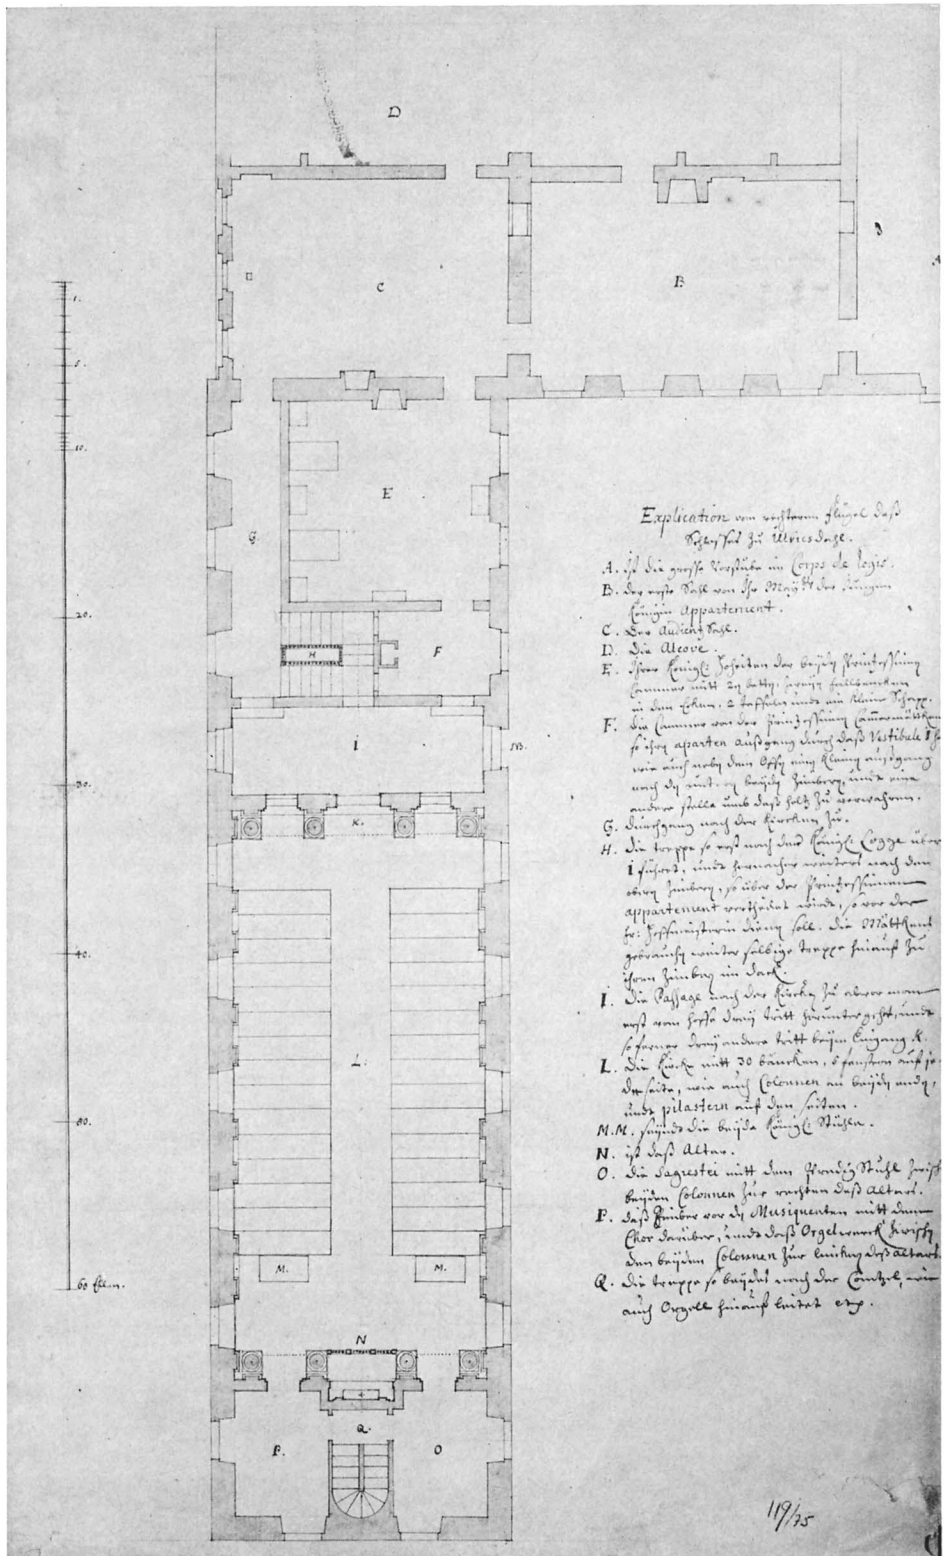 D
B
A
C
B.
1.
5.
10.
E
G.
20.
H
F
I
NB.
30.
K.
40.
L.
50.
60 Ellen.
M. M.
N
P. Q. O
Explication vom rechteren flügel daß
Schlosses zu Ulricsdahl.
A. ist die grosse Vorstube im Corps de logis.
B. der erste Sahl von Ihr Maÿtt der Königin
Königin Appartement.
C. Der Audientz Sahl.
D. Die Alcove.
E. Ihrer Königl: Hoheiten der beÿden Printzessinnen
Cammer mitt
in den Ecken. 2 Taffeln undt ein kleine Schapp.
F. die Cammer von der Printzessinnen
so ihren aparten außgang durch daß Vestibule I
wie auch neben dem Offen ein kleinen außgang
nach beÿden Zimbern, undt eine
andere stelle umb daß holtz zu verwahren.
G. durchgang nach der Kirchen zu.
H. die treppe so erst nach der Königl: Logge über
I führet, undt hernacher weiters nach den
obern Zimbern, so über der Printzessinnen
appartement so vor der
fr: Hoffmeisterin dienen soll. die
gebrauchen weiter selbige treppe hinauf zu
ihren Zimbern im dach.
I. Die Passage nach der Kirchen zu
erst vom hoffe dreÿ tritt herunter gehet, undt
so ferner dreÿ andere tritt beÿm Eingang K.
L. die Kirche mitt 30 bäncken, 6 fenstern auf je
der seite, wie auch Colonnen an beÿden enden,
undt pilastern auf den seiten.
M.M. seÿndt die beÿde Königl: Stühle.
N. ist daß Altar.
O. die Sagrestei mitt dem Predig Stuhl zwisch
beÿden Colonnen zur rechten deß altars.
P. daß Zimber vor die Musiquanten mitt dem
Chor darüber, undt daß Orgelwerck zwisch
den beÿden Colonnen zur lincken deß altars.
Q. die treppe so beÿdes nach der Cantzel, wie
auch Orgell hinauf leitet etc.
119/75